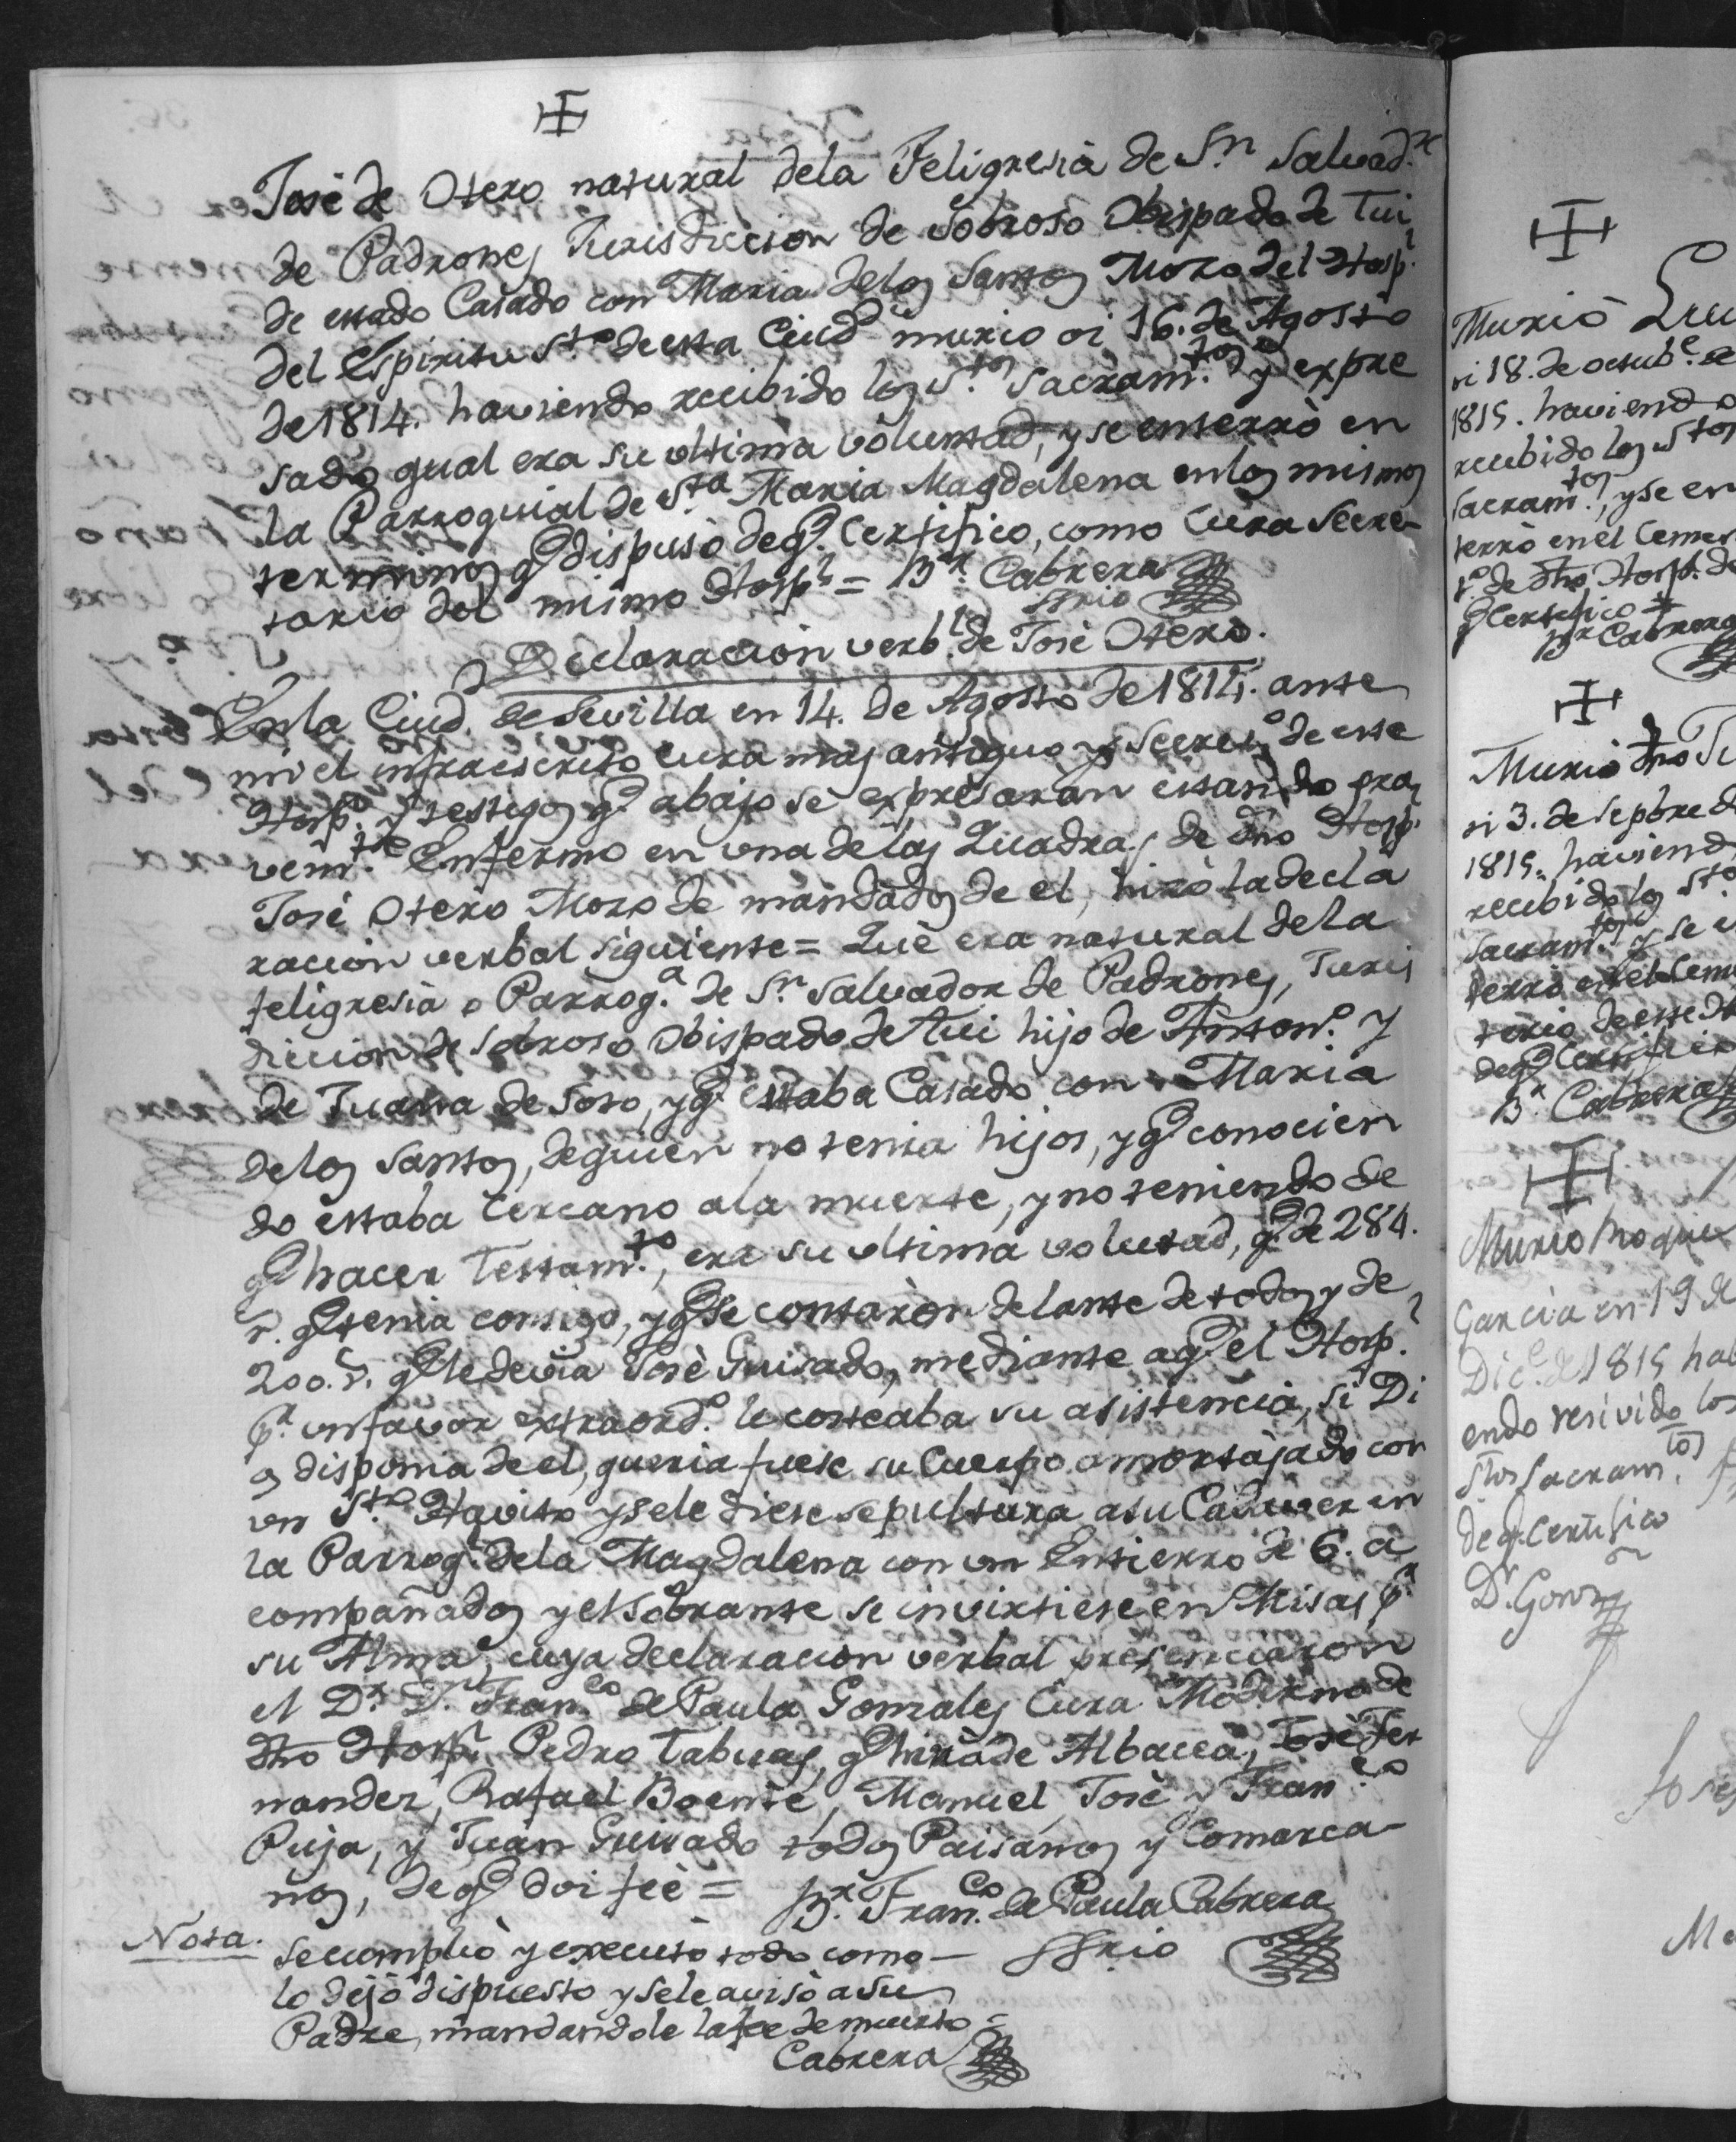 Josè de Otero natural dela Feligresià de S.n Salvad.r
de Padrones Jurisdiccion de Sobroso Obispado de Tui
de estado Casado con Maria delos Santos Mozo del Hosp.l
del Espiritu S.to de esta Ciud.d murio oi 16. de Agosto
de 1814. haviendo recibido los S.tos Sacram.tos y expre
sado qual era su ultima voluntad, y se enterrò en
la Parroquial de S.ta Maria Magdalena en los mismos
terminos q.e dispusò de q.e Certifico, como Cura Secre-
tario del mismo Hosp.l = B.r Cabrera
Srio
Declaracion verb.l de Josè Otero.
En la Ciud.d de Sevilla en 14. de Agosto de 1814. ante
mi el infraescrito Cura mas antiguo y Secret.o de este
Hosp.l y testigos q.e abajo se expresaràn estando gra
vem.te Enfermo en una de las Quadras de dho Hosp.l
Josè Otero Mozo de mandados de el, hizo la decla
racion verbal siguiente = Què era natural de la
feligresià o Parroq.a de S.n Salvador de Padrones, Juris
diccion de Sobroso Obispado de Tui hijo de Anton.o y
de Juana de Soto, y q.e estaba Casado con Maria
delos Santos, de quien no tenia hijos, y q.e conocien
do estaba Cercano ala muerte, y no teniendo de
q.e hacer Testam.to, era su ultima volutad, q.e de 284.
r.s q.e tenia consigo, y q.e se contaròn delante de todos y de
200. r.s q.e le devia Josè Guisado, mediante a q.e el Hosp.l
p.r un favor extraord.o le costeaba su asistencia, si Di
os disponia de el, queria fuese su Cuerpo amortajado con
un S.to Havito y se le diese sepultura a su Cadaver en
la Parroq.l dela Magdalena con un Entierro de 6. a
compañados y el sobrante se invirtiese en Misas p.r
su Alma, cuya declaracion verbal presenciaron
el D.r D.n Fran.co de Paula Gonzales Cura Moderno de
dho Hosp.l Pedro Tabuas, q.e hizo de Albacea, Josè Fer
nandez, Rafael Boente, Manuel, Josè y Fran.co
Puja, y Juan Guisado todos Paisanos y Comarca-
nos, de q.e doi feè = B.r Fran.co de Paula Cabrera
Nota. Se cumpliò y executò todo como — SSrio
lo dejò dispuesto y se le avisò a su
Padre, mandandole la fee de muerto =
Cabrera
Muriò
oi 18. de octub.e de
1815. haviendo
recibido los S.tos
Sacram.tos, y se en
terrò en el Cemen
t.o de dho Hosp.l de
q.e Certifico =
B.r Cabrera
Muriò dho
oi 3. de Sepbre de
1815. haviendo
recibido los S.tos
Sacram.tos y se en
terrò en el Cemen
terio de este
de q.e Certifico
B.r Cabrera
Murio
Garcia en 19 de
Dic.e de 1815 habi
endo resivido los
Stos Sacram.tos
de q.e Certifico
D.r Gonz